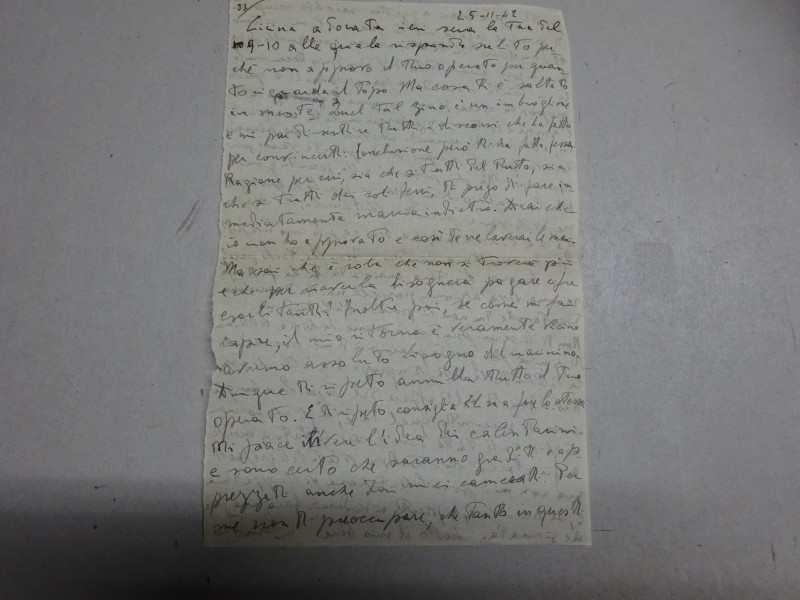 33/ 25-11-42
adorata ieri sera la tua del
9-10 alla quale rispondo subito per
chè non approvo il tuo operato per quan
to riguarda il topo. Ma cosa ti è saltato
in mente? Quel tal Gino è un imbroglione
e mi par di sentire tutti i discorsi che ha fatto
per convincerti. Conclusione però ti ha fatta fessa
Ragione per cui, sia che si tratti del tutto, sia
che si tratti dei soli ferri, ti prego di fare im
mediatamente marcia indietro. Dirai che
io non ho approvato e così te ne laverai le mani.
Ma sai che è roba che non si trova più
e che per riaverla bisognerà pagare cifre
esorbitanti? Inoltre poi, se come mi fai
capire, il mio ritorno è veramente vicino
avremo assoluto bisogno del
Dunque ti ripeto annulla tutto il tuo
operato. E ti ripeto, consiglia
Mi piace invece l'idea dei calendarini
e sono certo che saranno graditi e ap
prezzati anche dai miei camerati. Per
me non ti preoccupare, che tanto in questi